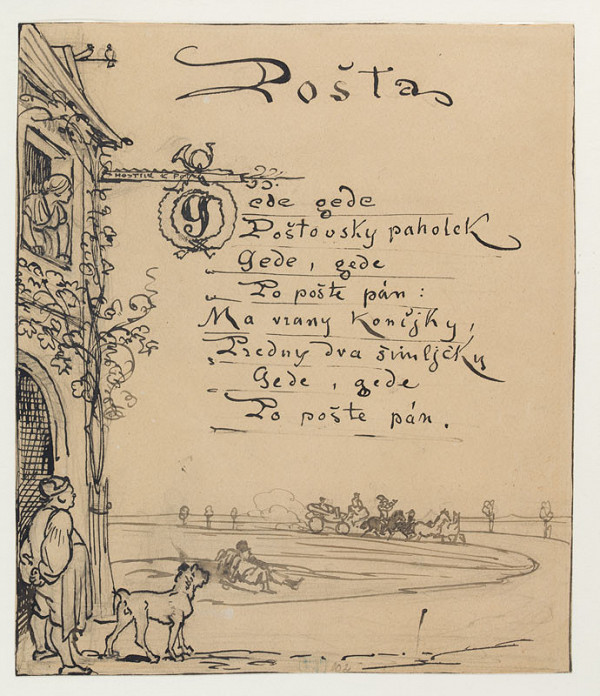 Pošta
HOSTINEC
Gede gede
Poštovsky paholek
Gede, gede
Po pošte pán:
Ma vrany konijky,
Predny dva šimljčky
Gede, gede
Po pošte pán.